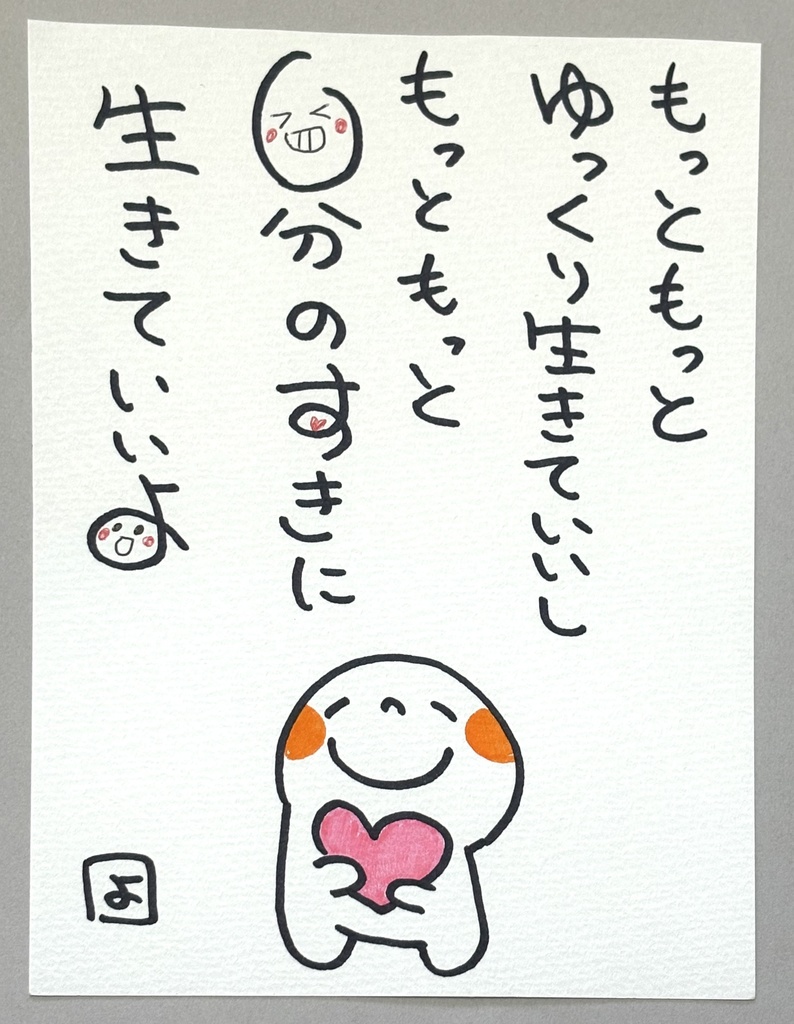 もっともっと
ゆっくり生きていいし
もっともっと
自分のすきに
生きていいよ
よ